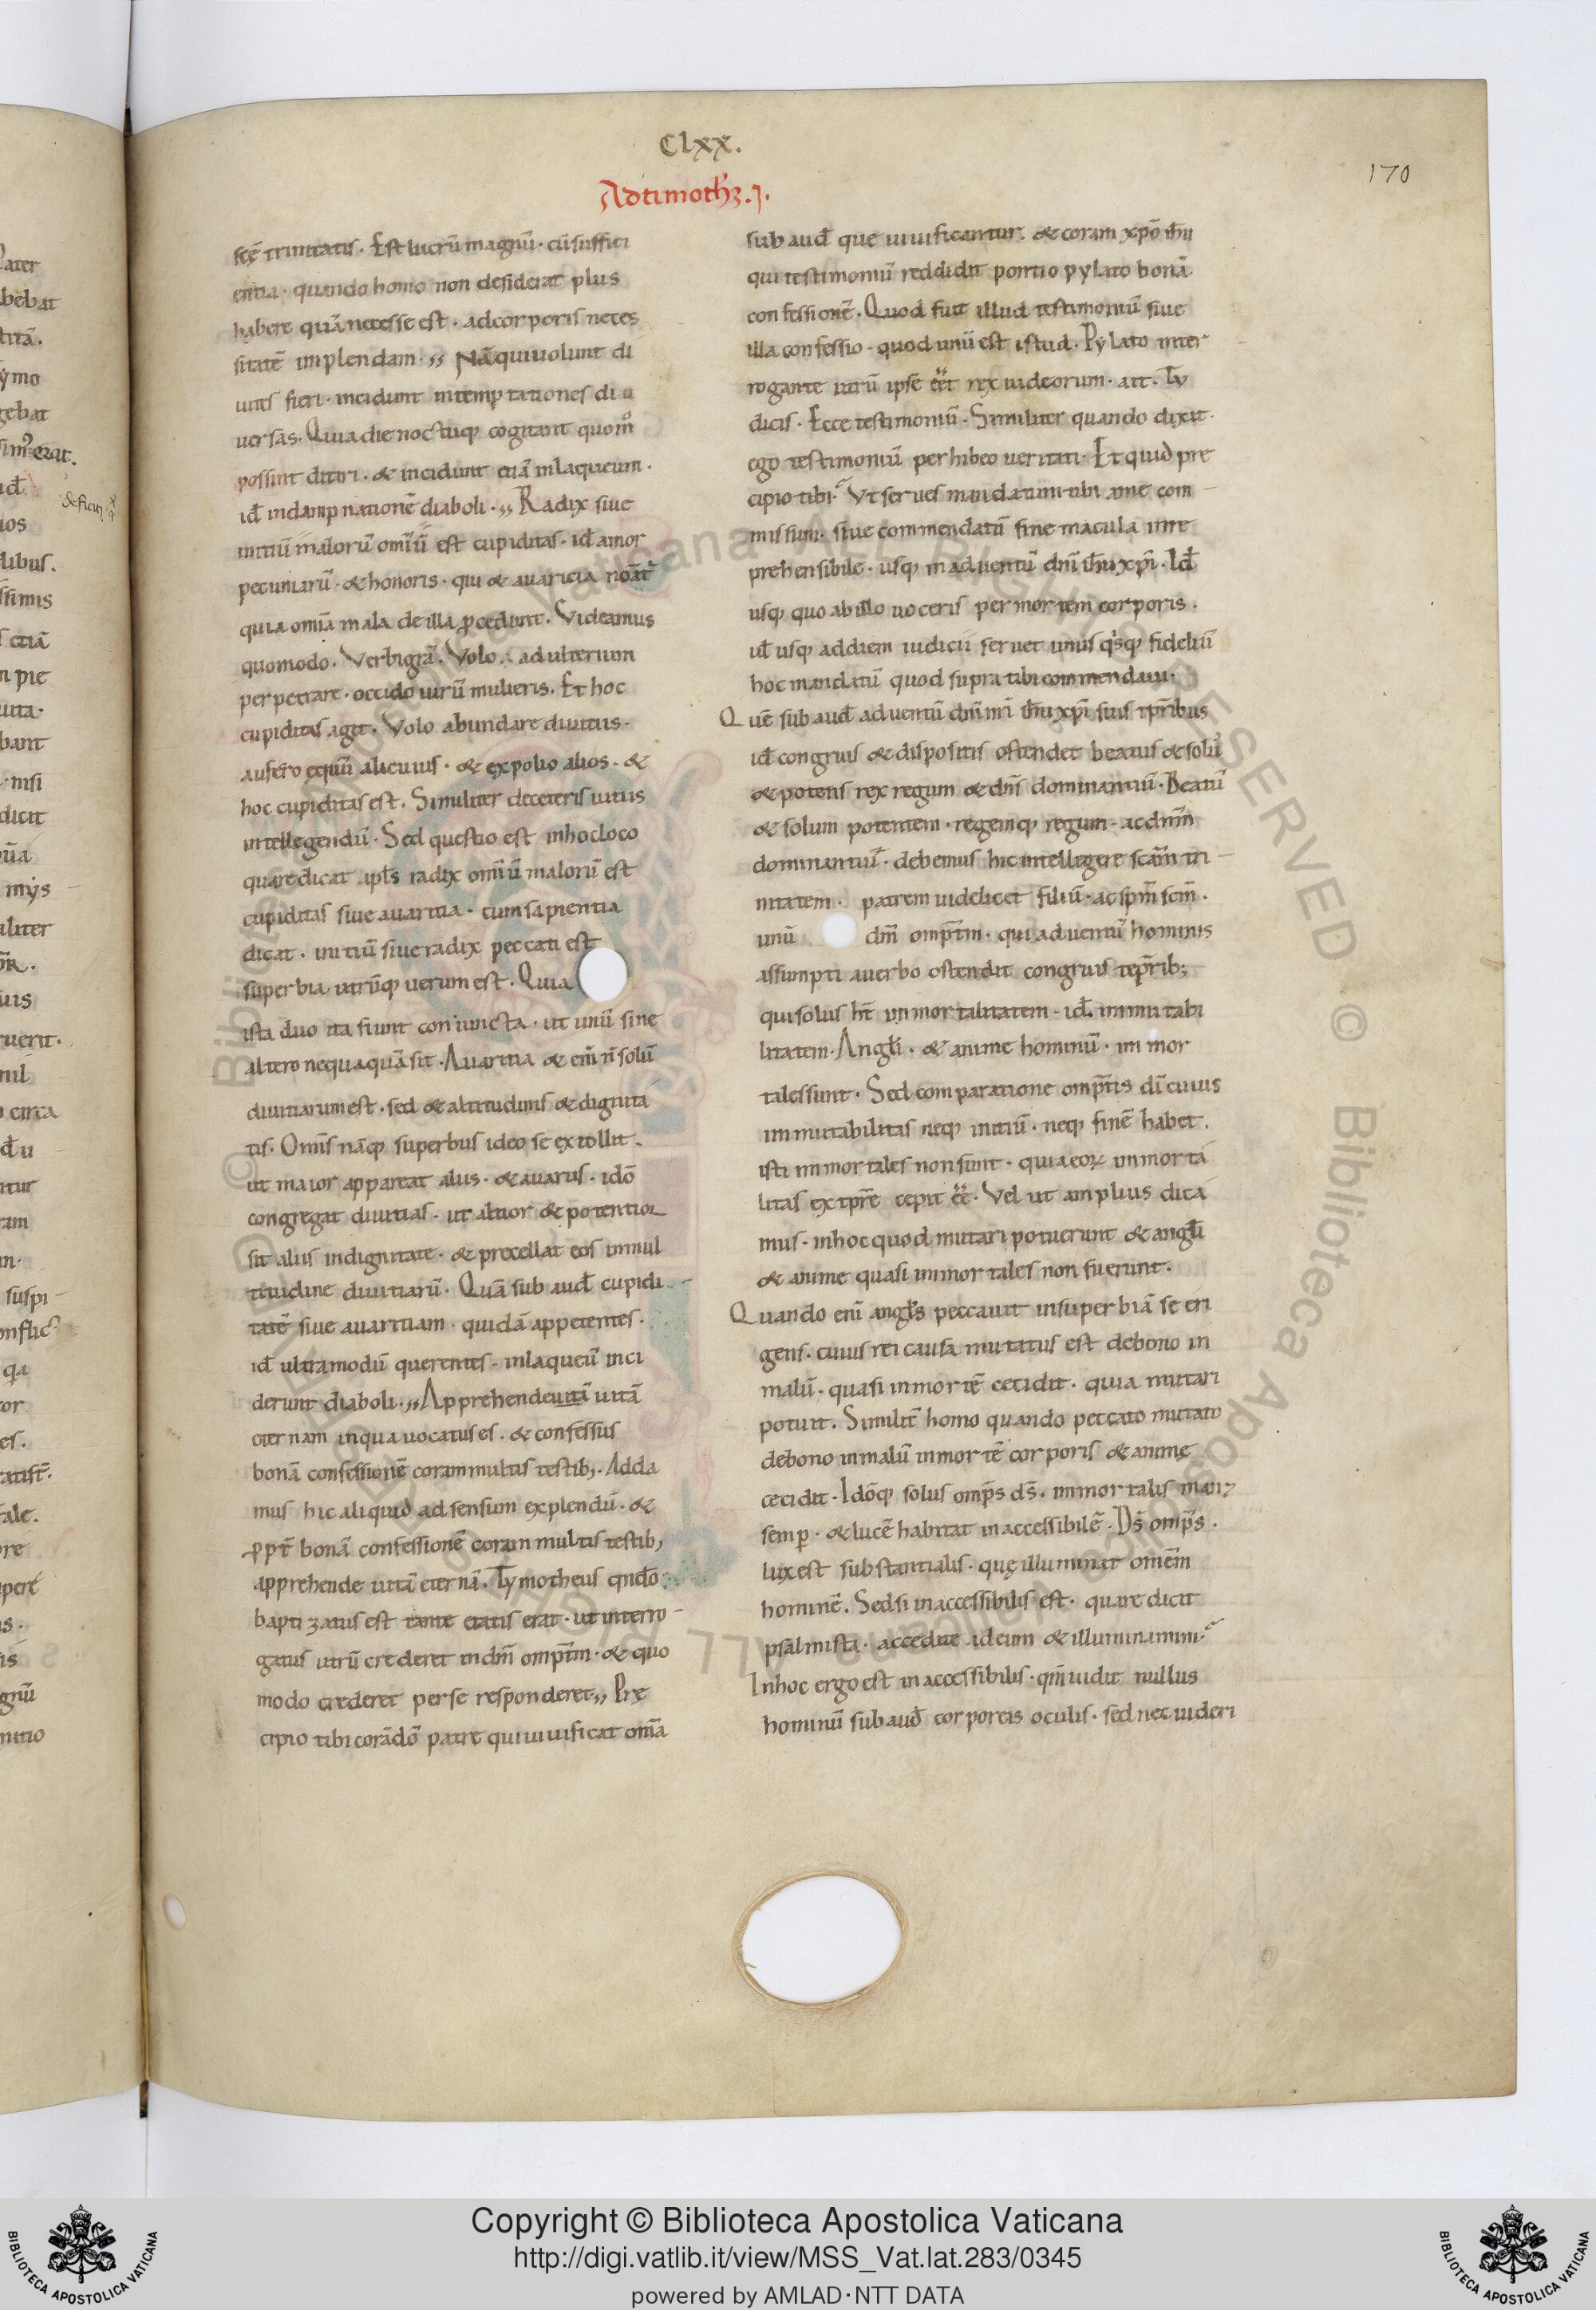 Clxx.
170
Adtimoth̅ȝ.j.
sc̅ę trinitatis. Est lucru̅ magnu̅. cu̅ suffici
entia. quando homo non desiderat plus
habere qua̅ necesse est. ad corporis neces
sitate̅ implendam. Na̅ qui uolunt di
uites fieri. incidunt intemptationes di
uersas. Quia die noctuq; cogitant quom̊
possint ditari. & incidunt etia̅ inlaqueum.
id̅ indampnatione̅ diaboli. Radix siue
initiu̅ maloru̅ omiu̅ est cupiditas. id̅ amor
pecuniaru̅. & honoris. qui & auaricia noat̅
quia omia̅ mala de illa p̲cedunt. Videamus
quomodo. Verbigra̅. Volo adulterium
perpetrare. occido uiru̅ mulieris. Et hoc
cupiditas agit. Volo abundare diuitiis.
aufero equu̅ alicuius. & expolio alios. &
hoc cupiditas est. Similiter deceteris uitiis
intellegendu̅. Sed questio est inhocloco
quare dicat apl̅s radix omiu̅ maloru̅ est
cupiditas siue auaritia. cum sapientia
dicat. initiu̅ siue radix peccati est
superbia utru̅q; uerum est. Quia
ista duo ita siunt coniuncta. ut unu̅ sine
altero nequaqua̅ sit. Auaritia & eni̅ n̅ solu̅
diuitiarum est. sed & altitudinis & dignita
tis. Omis̅ na̅q; superbus ideo se extollit.
ut maior appareat aliis. & auarus. ido̅
congregat diuitias. ut altior & potentior
sit aliis indignitate. & precellat eos inmul
titudine diuitiaru̅. Qua̅ sub aud̅ cupidi
tate̅ siue auaritiam quida̅ appetentes.
id̅ ultramodu̅ querentes. inlaqueu̅ inci
derunt diaboli. Apprehende uita̅ uita̅
eternam inqua uocatus es. & confessus
bona̅ confessione̅ coram multis testib;. Adda
mus hic aliquid ad sensum explendu̅. &
p̲pt̅ bona̅ confessione̅ coram multis testib;
apprehende uita̅ eterna̅. Tymotheus qn̅do
baptizatus est tante etatis erat. ut interro
gatus utru̅ crederet in dm̅ omptm̅. & quo
modo crederet per se responderet. Pre̜
cipio tibi cora̅ do̅ patre qui uiuificat omia̅
sub aud̅ que uiuificantur. & coram xpo̅ ih̅u
qui testimoniu̅ reddidit pontio pylato bona̅
confessione̅. Quod fuit illud testimoniu̅ siue
illa confessio. quod unu̅ est istud. Pylato inter
rogante utru̅ ipse ee̅t rex iudeorum. ait. Tu
dicis. Ecce testimoniu̅. Similiter quando dixit.
ego testimoniu̅ perhibeo ueritati. Et quid pre
cipio tibi? Vt serues mandatum tibi ame com
missum. siue commendatu̅ sine macula inre
prehensibile. usq; in aduentu̅ dni̅ ih̅u xpi̅. Id̅
usq; quo ab illo uoceris per mortem corporis.
ul̅ usq; ad diem iudicii seruet unus qs̅q; fideliu̅
hoc mandatu̅ quod supra tibi commendaui.
Que̅ sub aud̅ aduentu̅ dni̅ nri̅ ih̅u xpi̅ suis tpr̅ibus
id̅ congruis & dispositis ostendet beatus & solus
& potens rex regum & dns̅ dominantiu̅. Beatu̅
& solum potentem. regemq; regum. ac dnm̅
dominantiu̅. debemus hic intellegere sca̅m tri
nitatem. patrem uidelicet filiu̅. ac spm̅ scm̅.
unu̅ dm̅ omptm̅. qui aduentu̅ hominis
assumpti auerbo ostendit congruis tepr̅ib;
qui solus ht̅ inmortalitatem. id̅. inmutabi
litatem. Angl̅i. & anime hominu̅. immor
tales sunt. Sed comparatione omptis̅ di̅ cuius
immutabilitas neq; initiu̅. neq; fine̅ habet.
isti inmortales non sunt. quia eoꝝ inmorta
litas ex tpr̅e cepit ee̅. Vel ut amplius dica
mus. inhoc quod mutari potuerunt & angl̅i
& anime quasi inmortales non fuerunt.
Quando eni̅ angl̅s peccauit insuperbia̅ se eri
gens. cuius rei causa mutatus est debono in
malu̅. quasi inmorte̅ cecidit. quia mutari
potuit. Similit̅ homo quando peccato mutato
debono inmalu̅ inmorte̅ corporis & animę
cecidit. Ido̅q; solus omps̅ ds̅. inmortalis man&
semp̲. & luce̅ habitat inaccessibile̅. Ds̅ omps̅.
lux est substantialis. quę illuminat omem̅
homine̅. Sed si inaccessibilis est. quare dicit
psalmista. accedite ad eum & illuminamini?
Inhoc ergo est inaccessibilis. qm̅ uidit nullus
hominu̅ sub aud̅ corporeis oculis. sed nec uideri
Copyright © Biblioteca Apostolica Vaticana
http://digi.vatlib.it/view/MSS_Vat.lat.283/0345
powered by AMLAD·NTT DATA